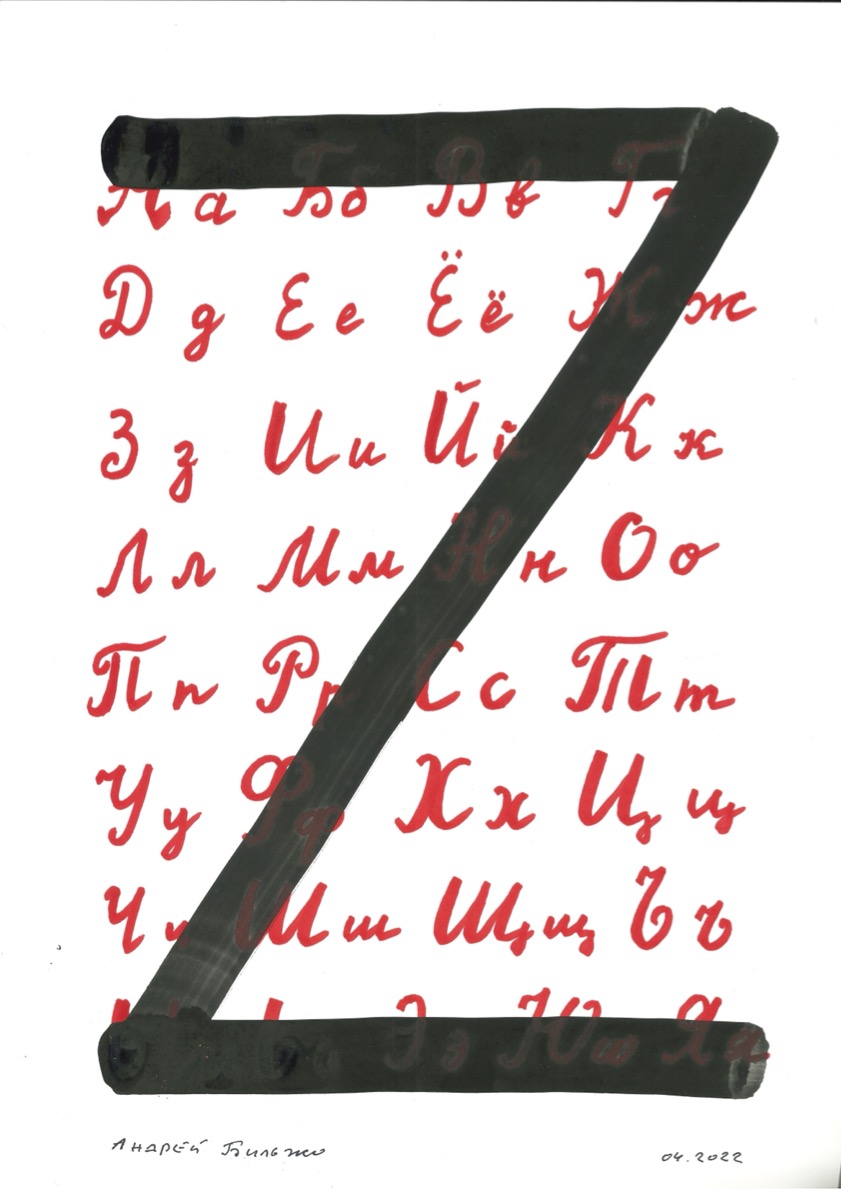 Z
А а Б б В в Г г
Д д Е е Ё ё Ж ж
З з И и Й й К к
Л л М м Н н О о
П п Р р С с Т т
У у Ф ф Х х Ц ц
Ч ч Ш ш Щ щ Ъ ъ
Э э Ю ю Я я
Андрей Бильжо 04.2022